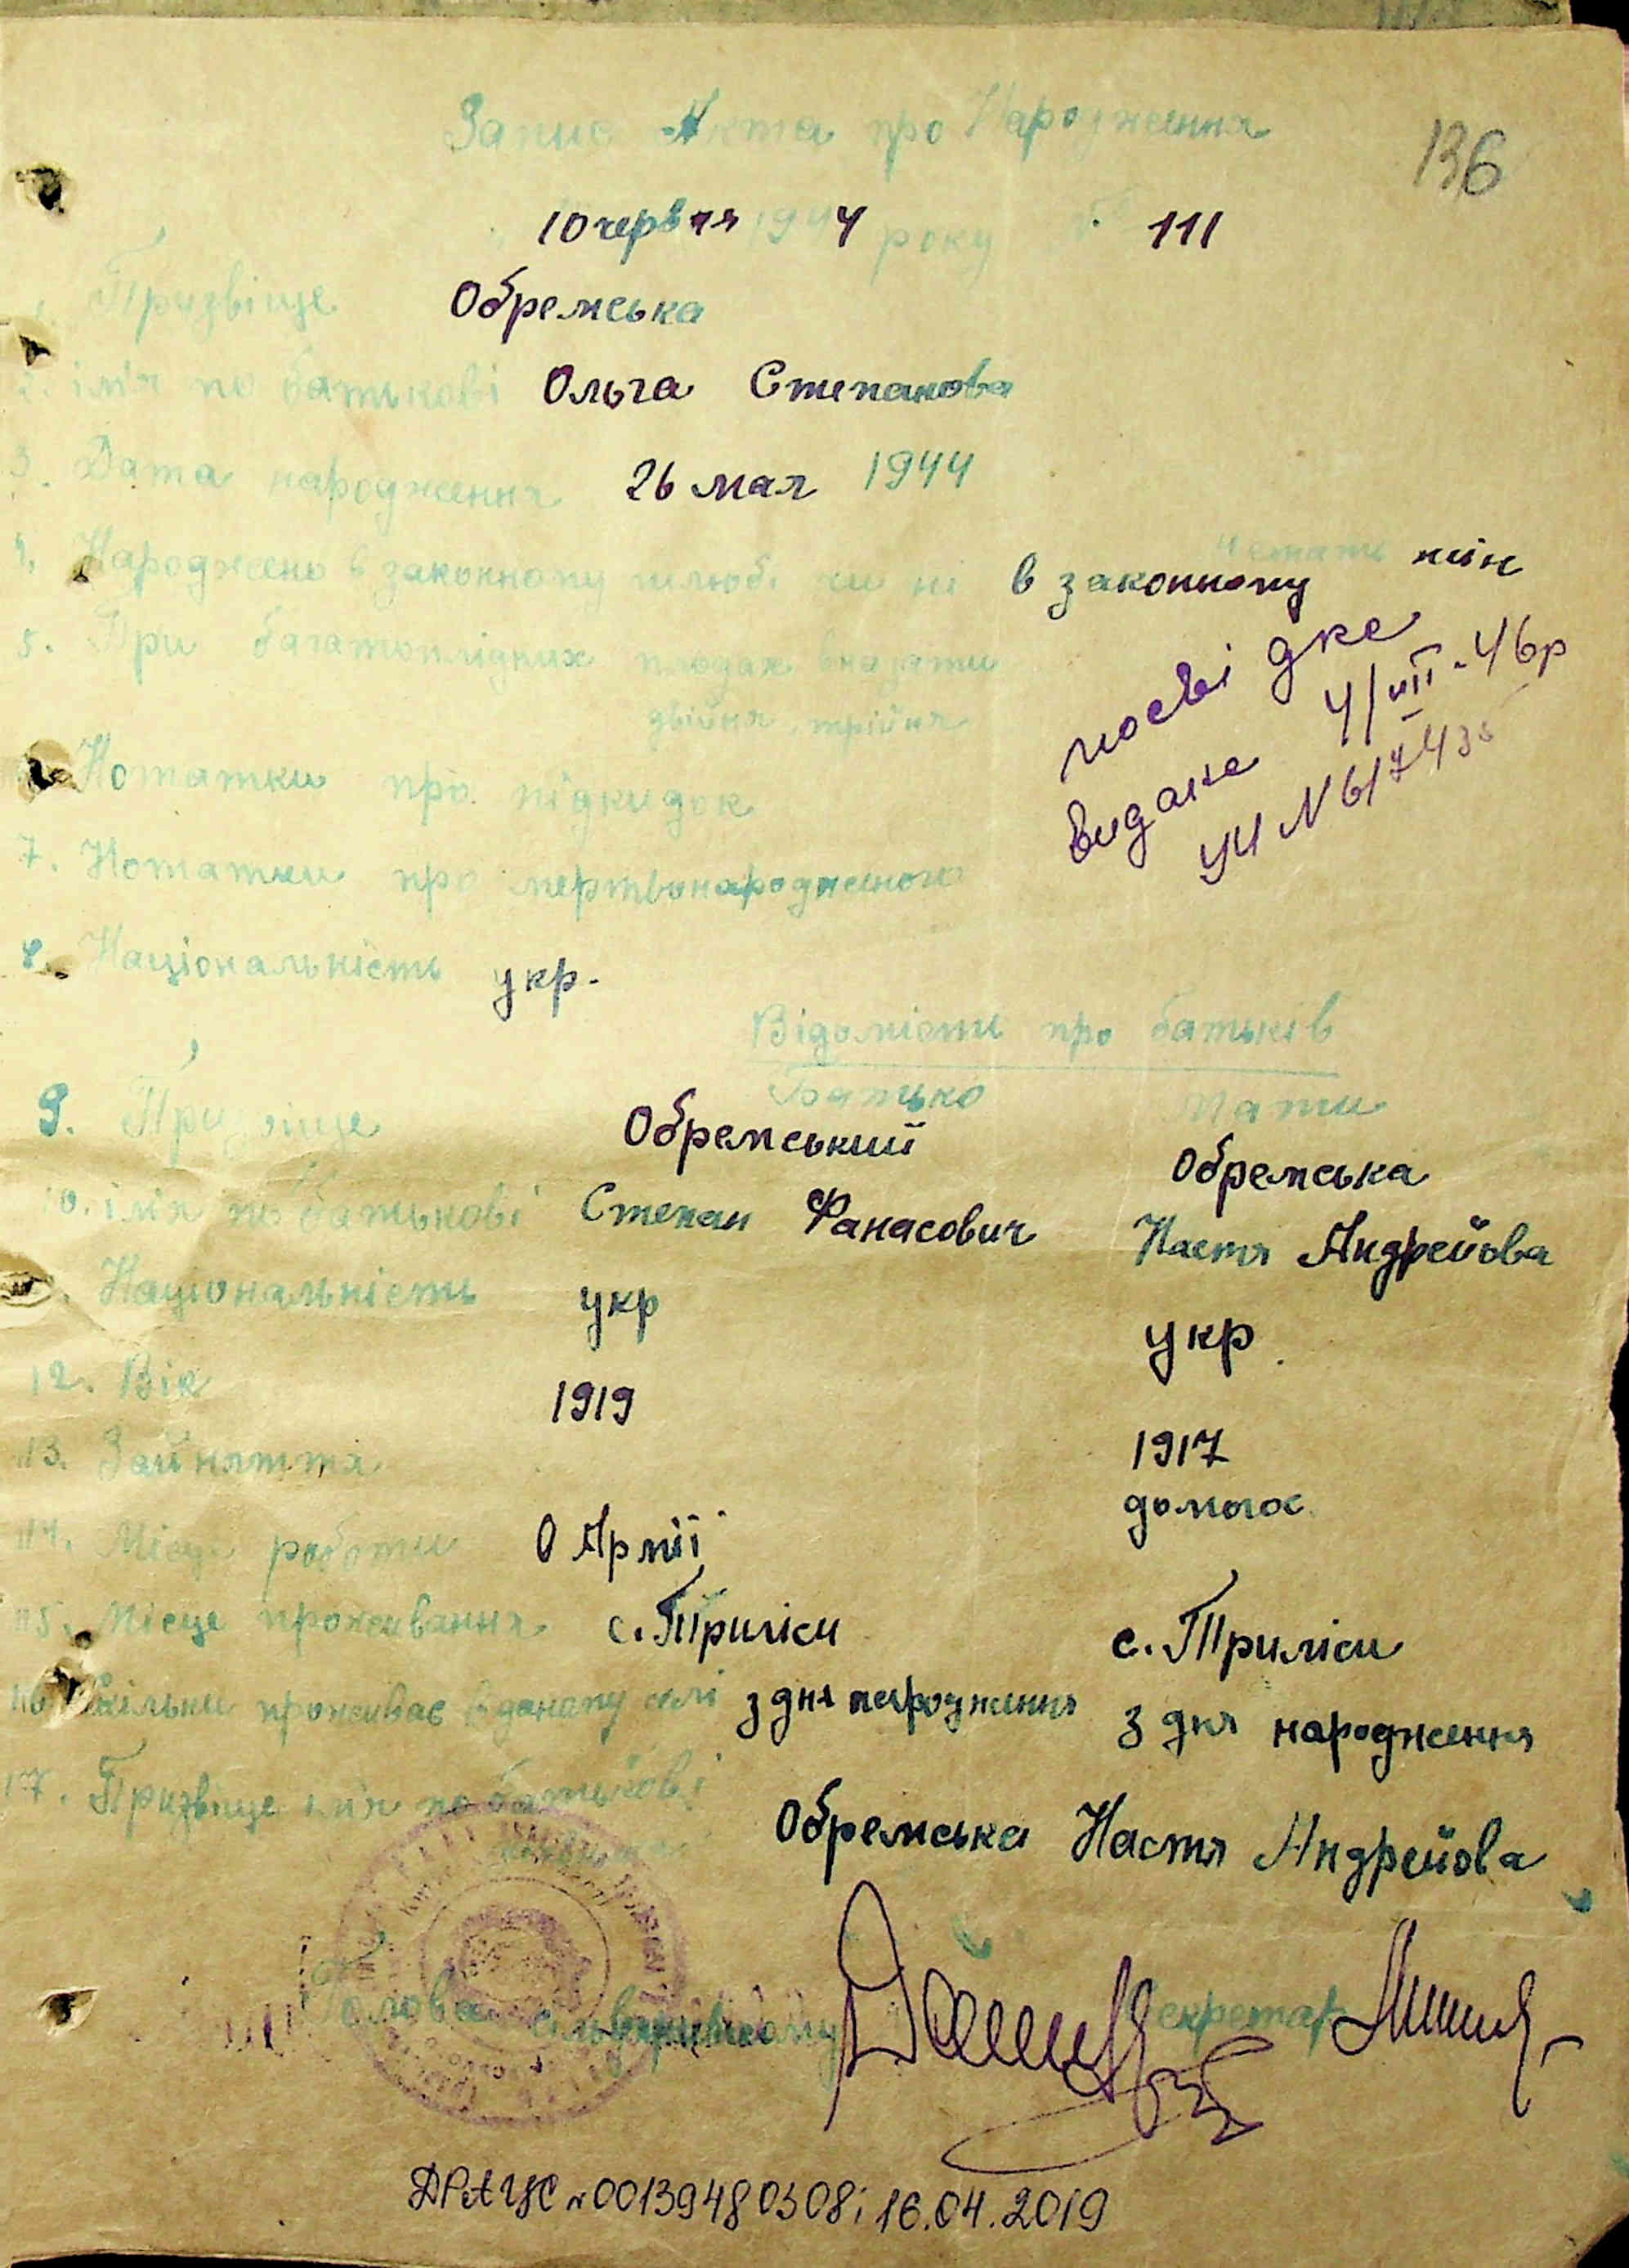 Запис Акта про Народження
136
10 червня 1944 року № 111
1. Призвіще Обремська
2. імя по батькові Ольга Степанова
3. Дата народження 26 мая 1944
4. Народжено в законному шлюбі чи ні в законному
5. При багатоплідних родах вказати
двійня, трійня
посвідке
видане 4/VII-46р
УЧ №617438
6. Нотатки про підкидок
7. Нотатки про мертвонародженого
8. Національність укр.
Відомісти про батьків
Батько Мати
9. Призвіще Обремський Обремська
10. імя по батькові Степан Фанасович Настя Андрейова
Національність укр укр
12. Вік 1919 1917
13. Зайняття домогос
14. Місце роботи О Армії
15. Місце проживання с. Триліси с. Триліси
16. Скільки проживає в даному селі з дня народження з дня народження
17. Призвіще імя по батькові
Обремська Настя Андрейова
Голова Секретар
ДРАЦС №00139480308; 16.04.2019